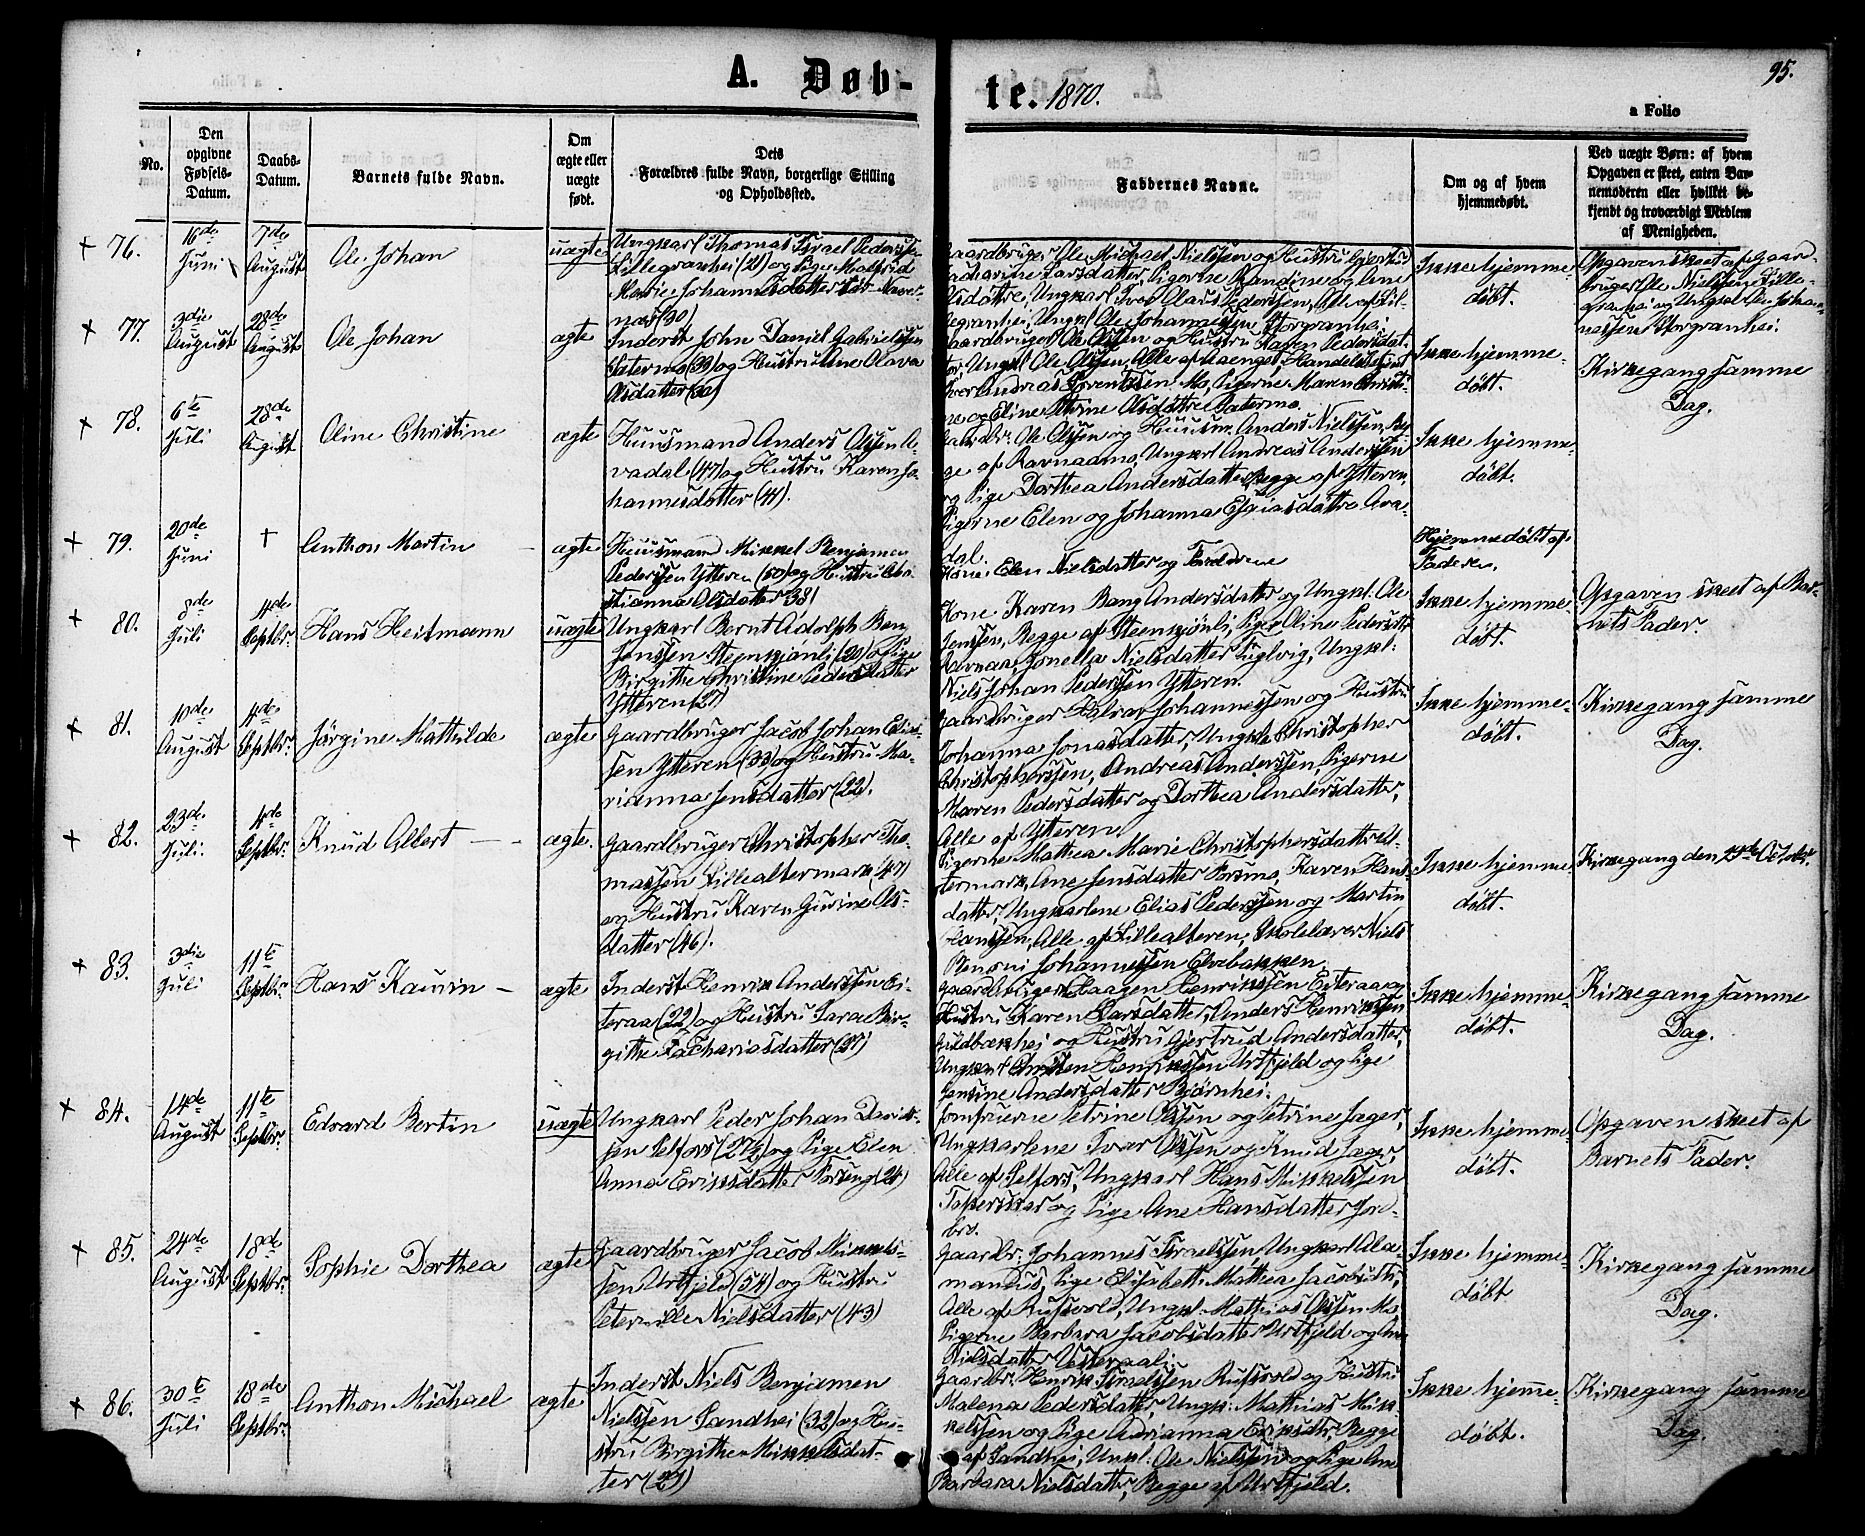 A. Døb-
te. 1870.
95.
a Folio
No.
Den
opgivne
Fødsels-
Datum.
Daabs-
Datum.
Barnets fulde Navn.
Om
ægte eller
uægte
født.
Dets
Forældres fulde Navn, borgerlige Stilling
og Opholdssted.
Faddernes Navne.
Om og af hvem
hjemmedøbt.
Ved uægte Børn: af hvem
Opgaven er skeet, enten Bar-
nemoderen eller hvilket be-
kjendt og troværdigt Medlem
af Menigheden.
+ 76.
16de
Juni
7de
August
Ole Johan
uægte
Ungkarl Thomas Israel Pedersen
Lillegranhei (21) og Pige
Marie Johannesdatter
(30)
Gaardbruger Ole Michael Nielssen og Hustru
Larsdatter, Pigerne Randine og Ane
Olsdøttre, Ungkarl Ivar Olaus Pederssen, Alle af Lil-
legranhei, Ungkl. Ole Johannessen Storgranhei
Ikke hjemme
døbt.
Opgaven skeet af Gaard-
bruger Ole Nielssen Lille-
granhei og Ungkal Ole Johan-
nessen Storgranhei.
+ 77.
3die
August
28de
August
Ole Johan
ægte
Inderst John Daniel Gabrielssen
(33) og Hustru Ane Olava
Olsdatter (30)
Gaardbruger Ole Olssen og Hustru Karen Pedersdat-
ter, Ungkl Ole Olssen, Alle af
Iver Andreas Lorentssen Mo, Pigerne Maren Christi-
ne og Eline Petrine Olsdøttre
Ikke hjemme-
døbt.
Kirkegang samme
Dag.
+ 78.
6te
Juli
28de
August
Oline Christine
ægte
Huusmand Anders Olssen A-
vadal (47) og Hustru Karen Jo-
hannesdatter (41).
Gaardbr. Ole Olssen og Huusm. Anders Nielssen, Beg-
ge af Ravnaamo, Ungkarl Andreas Anderssen
og Pige Dorthea Andersdatter Begge af Ytteren,
Pigerne Elen og Johanna Esaiasdøttre Ava-
dal.
Ikke hjemme-
døbt.
+ 79.
20de
Juni
+
Anthon Martin
ægte
Huusmand Mikkel Benjamin
Pederssen Ytteren (50) og Hustru
Olsdatter 38)
Kone: Elen Nielsdatter og Forældrene
Hjemmedøbt af
Faderen.
+ 80.
8de
Juli
4de
Septbr.
Hans Heitmann
uægte
Ungkarl Bernt Adolph Ben-
jonssen Steenkjønli (20) og Pige
Birgithe Christine Pedersdatter
Ytteren (27)
Kone Karen Bang Andersdatter og Ungkl. Ole
Jenssen, Begge af Steenkjønli, Pige Oline Pedersdtr
Ravnaa, Jonella Nielsdatter, Ungkl:
Niels Johan Pederssen Ytteren.
Ikke hjemme-
døbt.
Opgaven skeet af Bar-
nets Fader.
+ 81.
10de
August
4de
Septbr.
Jørgine Mathilde
ægte
Gaardbruger Jacob Johan Elias-
sen Ytteren (33) og Hustru Ma-
rianna Jensdatter (22).
Gaardbruger Halvor Johannessen og Hustru
Johanna Jonasdatter, Ungkle Christopher
Christopherssen, Andreas Anderssen, Pigerne
Maren Pedersdatter og Dorthea Andersdatter,
Alle af Ytteren.
Ikke hjemme-
døbt.
Kirkegang samme
Dag.
+ 82.
23de
Juli.
4de
Septbr.
Knud Albert
ægte.
Gaardbruger Christopher Tho-
massen Lillealtermark (47)
og Hustru Karen Gurine Ols-
datter (46).
Pigerne Mathea Marie Christophersdatter Al-
termark, Ane Jensdatter Forsmo, Karen Hans-
datter, Ungkarlene Elias Pederssen og Martin
Hanssen, Alle af Lillealteren, Skolelærer Niels
Benoni Johannessen Elvebakken.
Ikke hjemme
døbt.
Kirkegang den Octobr.
+ 83.
3die
Juli
11te
Septbr.
Hans Kauvin
ægte
Inderst Henrik Anderssen Ei-
teraa (22) og Hustru Sara Bir-
githe Zachariasdatter (27)
Gaardbruger Haagen Henrikssen Eiteraa og
Hustru Karen Larsdatter, Anders Henrikssen
Guldbækhei og Hustru Gjertrud Andersdatter,
Ungkarl Christen Henrikssen Urtfjeld og Pige
Jensine Andersdatter Bjørnhei.
Ikke hjemme-
døbt.
Kirkegang samme
Dag.
+ 84.
14de
August
11te
Septbr.
Edvard Bertin
uægte
Ungkarl Peder Johan David-
sen Selfors (27½) og Pige Elen
Anna Eriksdatter Forseng (24)
Jomfruerne Petrine Olssen og Petrine Jæger,
Ungkarlene Ivar Olssen og Knud Jæger,
Alle af Selfors, Ungkarl Hans Mikkelssen
og Pige Ane Hansdatter Jord-
bro.
Ikke hjemme-
døbt.
Opgaven skeet af
Barnets Fader.
+ 85.
24de
August
18de
Septbr.
Sophie Dorthea
ægte
Gaardbruger Jacob Mikkels-
sen Urtfjeld (54) og Hustru
Peternille Nielsdatter (43)
Gaardbr. Johannes Israelssen, Ungkarl Ala-
mandus, Pige Elisabeth Mathea Jacobsdtr,
Alle af Rufsvold, Ungkl. Mathias Olssen Mo
Pigerne Barbara Jacobsdatter Urtfjeld og Ane
Nielsdatter Vesteraali.
Ikke hjemme-
døbt
Kirkegang samme
Dag.
+ 86.
30te
Juli
18de
Septbr.
Anthon Michael
ægte
Inderst Niels Benjamen
Nielssen Sandhei (32) og Hu-
stru Birgithe Mikkelsdat-
ter (27)
Gaardbr. Henrik Israelssen Rufsvold og Hustru
Malena Pedersdatter, Ungk: Mathias Mik-
kelssen og Pige Adrianna Eriksdtr. Begge
af Sandhei, Ungkl. Ole Nielssen og Pige Ane
Barbara Nielsdatter, Begge af Urtfjeld.
Ikke hjemme-
døbt.
Kirkegang samme
Dag.